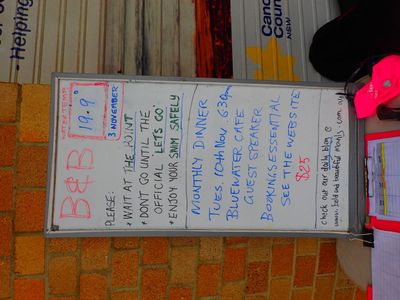 - Helping
Canc
Counc
NSW
B&B
WATER TEMP
19.9°
3 NOVEMBER
PLEASE:
* WAIT AT THE POINT
* DON'T GO UNTIL THE
OFFICIAL "LETS GO"
* ENJOY YOUR SWIM SAFELY
MONTHLY DINNER
TUES, 10TH NOV. 6.30pm
BLUEWATER CAFE
GUEST SPEAKER
BOOKINGS ESSENTIAL
SEE THE WEBSITE
$25
check out our daily blog @
www.boldandbeautifulmanly.com.au